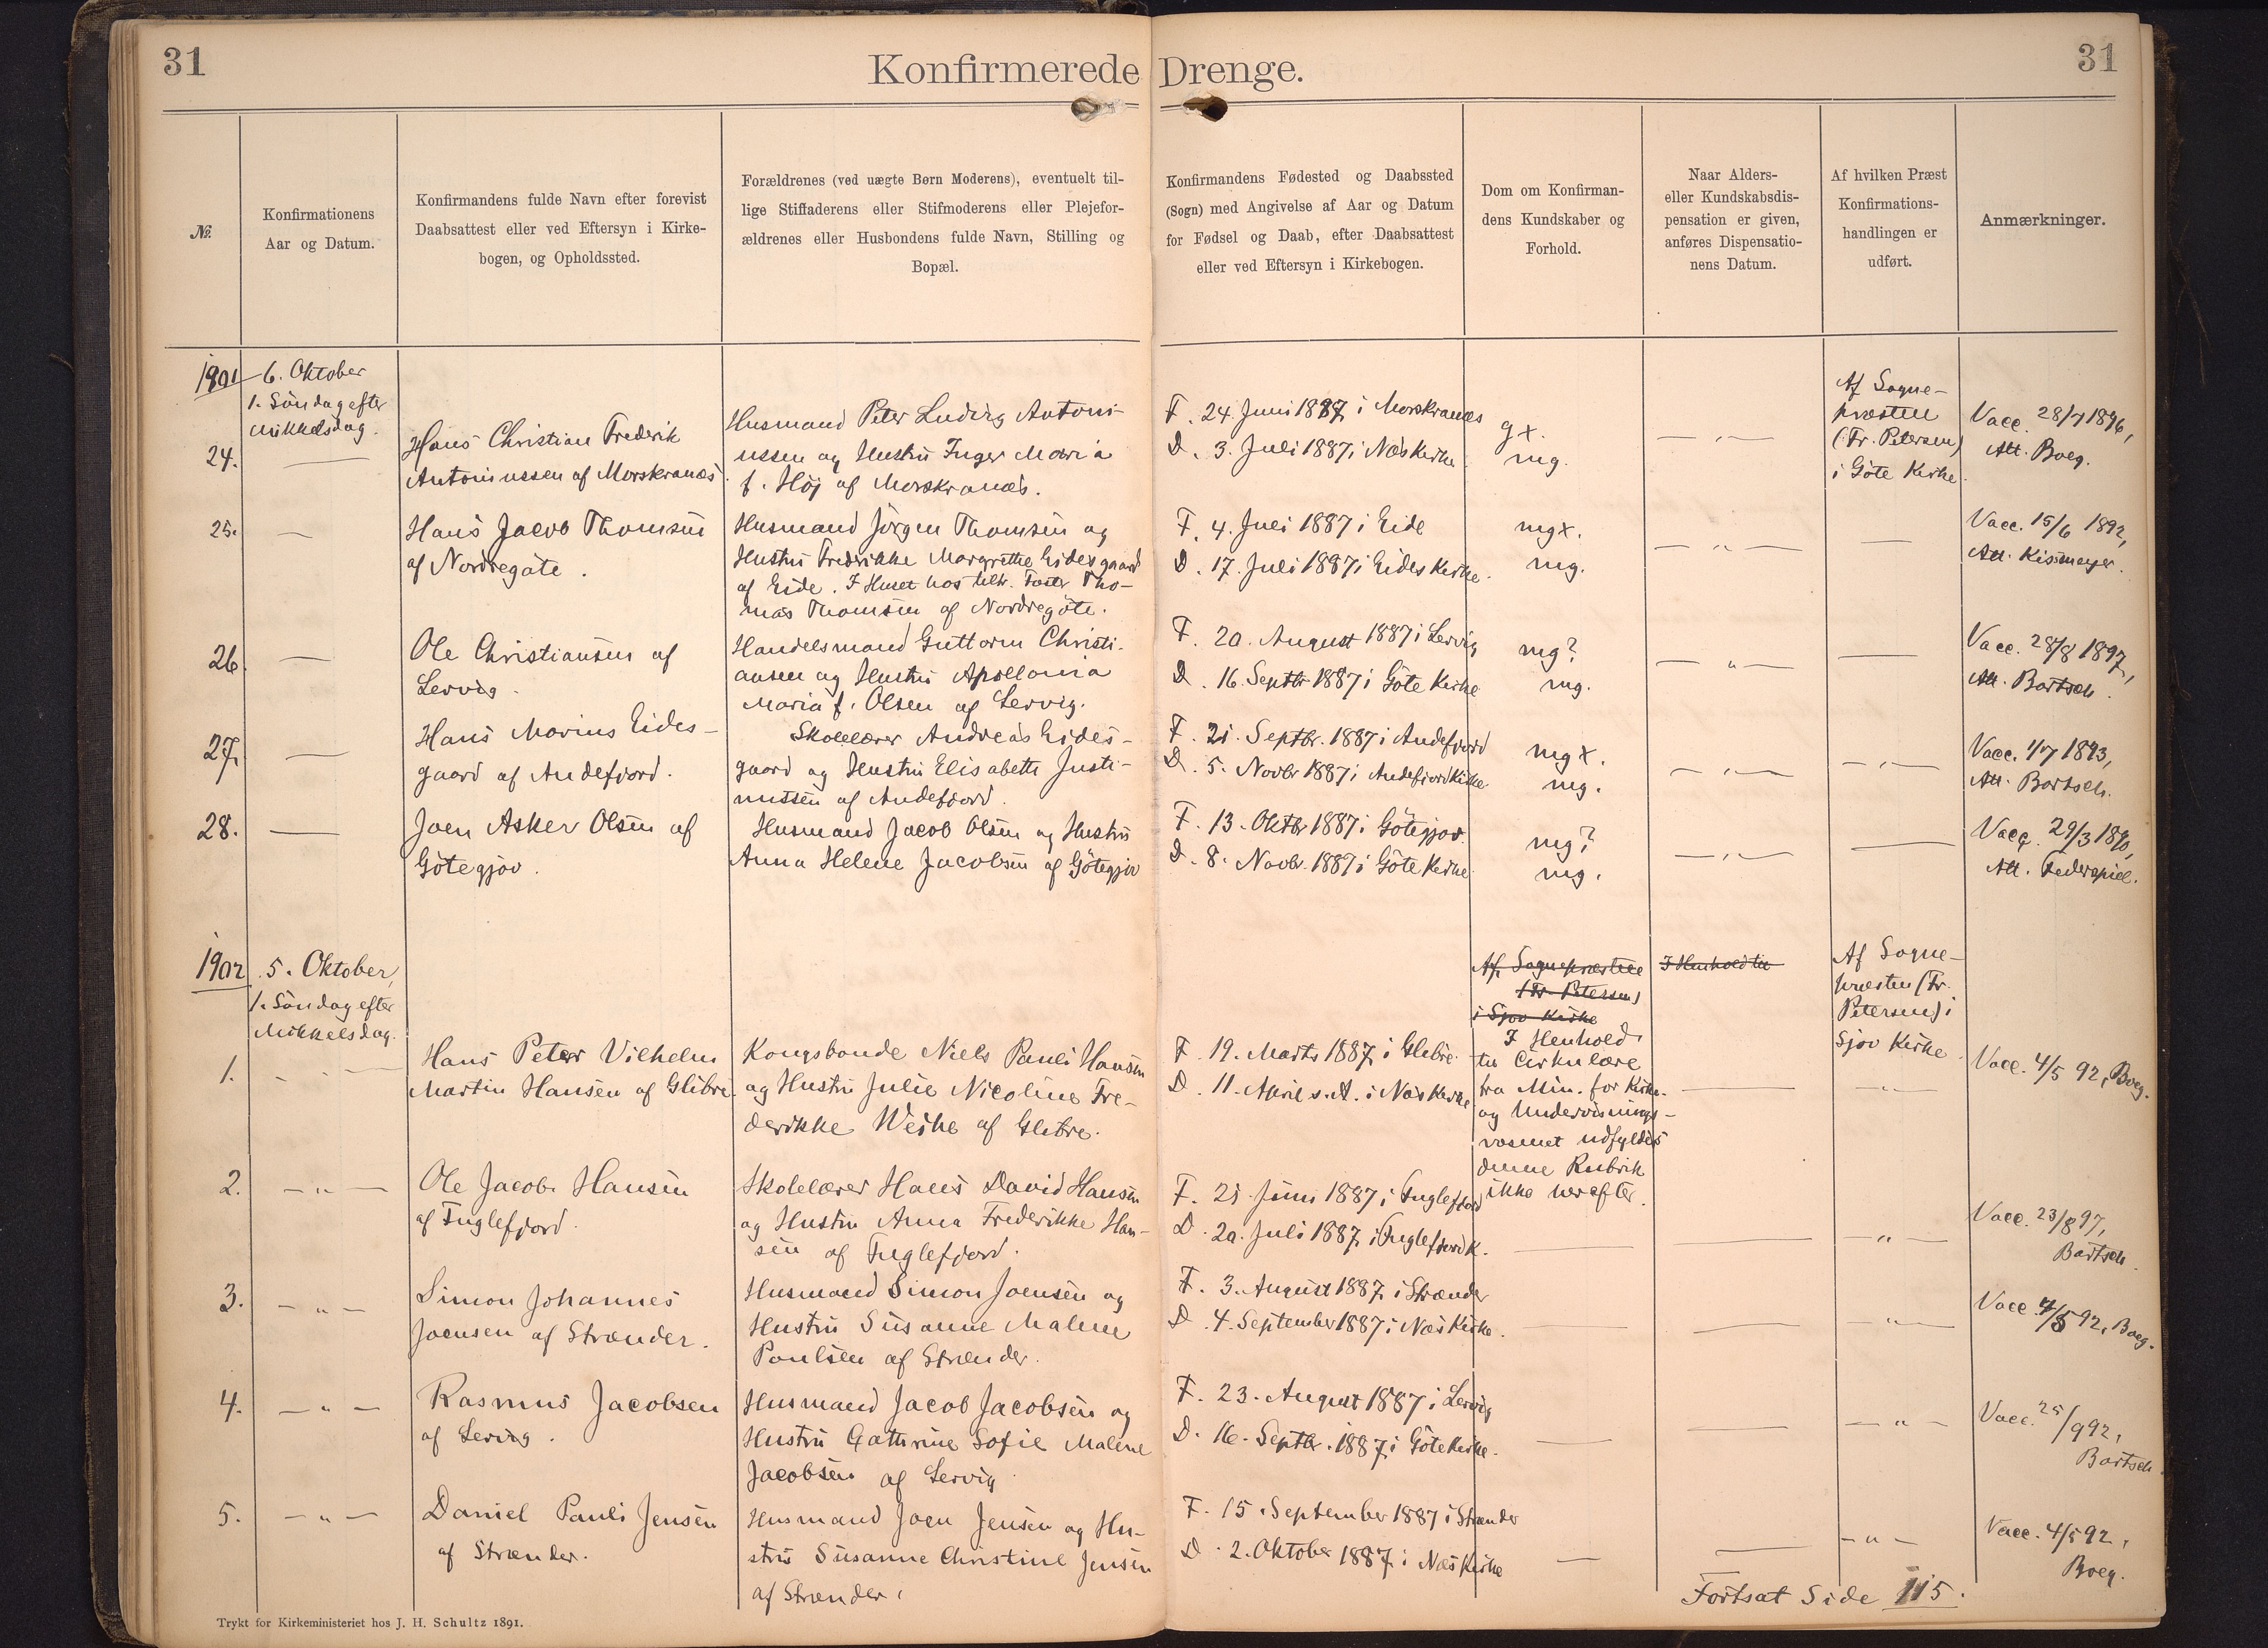 31
Konfirmerede Drenge.
31
No.
Konfirmationens
Aar og Datum.
Konfirmandens fulde Navn efter forevist
Daabsattest eller ved Eftersyn i Kirke-
bogen, og Opholdssted.
Forældrenes (ved uægte Børn Moderens), eventuelt til-
lige Stiffaderens eller Stifmoderens eller Plejefor-
ældrenes eller Husbondens fulde Navn, Stilling og
Bopæl.
Konfirmandens Fødested og Daabssted
(Sogn) med Angivelse af Aar og Datum
for Fødsel og Daab, efter Daabsattest
eller ved Eftersyn i Kirkebogen.
Dom om Konfirman-
dens Kundskaber og
Forhold.
Naar Alders-
eller Kundskabsdis-
pensation er given,
anføres Dispensatio-
nens Datum.
Af hvilken Præst
Konfirmations-
handlingen er
udført.
Anmærkninger.
1901
6. Oktober
1. Söndag efter
Mikkelsdag.
24.
Hans Christian Frederik
Antoniussen af Morskranæs
Husmand Peter Ludvig Antoni-
ussen og Hustru Inger Maria
f. Høj af Morskranæs.
F. 24. Juni 1887 i Morskranæs
D. 3. Juli 1887 i Næs Kirke.
g x.
mg.
— „ —
Af Sogne-
præsten
(Fr. Petersen)
i Göte Kirke.
Vacc. 28/7 1896,
Att. Boeg.
25.
—
Hans Jacob Thomsen
af Nordregöte.
Husmand Jörgen Thomsen og
Hustru Fredrikke Margrethe Eidesgaard
af Eide. I Huset hos Tho-
mas Thomsen af Nordregöte.
F. 4. Juli 1887 i Eide
D. 17. Juli 1887 i Eides Kirke.
mg x.
mg.
— „ —
—
Vacc. 15/6 1892,
Att. Kissmeyer.
26.
—
Ole Christiansen af
Lervig.
Handelsmand Guttorm Christi-
ansen og Hustru Apollonia
Maria f. Olsen af Lervig.
F. 20. August 1887 i Lervig
D. 16. Septbr 1887 i Göte Kirke
mg?
mg.
— „ —
—
Vacc. 28/8 1897,
Att. Bartsch.
27.
—
Hans Marius Eides-
gaard af Andefjord.
Skolelærer Andreas Eides-
gaard og Hustru Elisabeth Justi-
nussen af Andefjord.
F. 21. Septbr. 1887 i Andefjord
D. 5. Novbr 1887 i Andefjord Kirke.
mg x.
mg.
— „ —
— „ —
Vacc. 1/7 1893,
Att. Bartsch.
28.
—
Joen Asker Olsen af
Götegjov.
Husmand Jacob Olsen og Hustru
Anna Helene Jacobsen af Götegjov
F. 13. Oktbr 1887 i Götegjov.
D. 8. Novbr. 1887 i Göte Kirke
mg?
mg.
— „ —
—
Vacc. 29/3 1890,
Att. Federspiel.
1902
5. Oktober,
1. Söndag efter
Mikkelsdag.
Af Sognepræsten
(Fr. Petersen)
i Sjov Kirke
I Henhold til
Af Sogne-
præsten (Fr.
Petersen) i
Sjov Kirke.
1.
Hans Peter Vilhelm
Martin Hansen af Glibre.
Kongsbonde Niels Pauli Hansen
og Hustru Julie Nicoline Fre-
derikke Weihe af Glibre.
F. 19. Marts 1887 i Glibre.
D. 11. April s. A. i Næs Kirke
I Henhold
til Cirkulære
fra Min. for Kirke-
og Undervisnings-
væsenet udfyldes
denne Rubrik
ikke herefter.
Vacc. 4/5 92, Boeg.
2.
— „ —
Ole Jacob Hansen
af Fuglefjord.
Skolelærer Hans David Hansen
og Hustru Anna Frederikke Han-
sen af Fuglefjord.
F. 21. Juni 1887 i Fuglefjord
D. 20. Juli 1887 i Fuglefjord K.
Vacc. 23/8 97,
Bartsch.
3.
— „ —
Simon Johannes
Joensen af Strænder.
Husmand Simon Joensen og
Hustru Susanne Malene
Poulsen af Strænder.
F. 3. August 1887 i Strænder
D. 4. September 1887 i Næs Kirke.
Vacc 4/5 92, Boeg.
4.
— „ —
Rasmus Jacobsen
af Lervig.
Husmand Jacob Jacobsen og
Hustru Cathrine Sofie Malene
Jacobsen af Lervig
F. 23. August 1887 i Lervig
D. 16. Septbr. 1887 i Göte Kirke.
Vacc. 25/9 92,
Bartsch.
5.
— „ —
Daniel Pauli Jensen
af Strænder.
Husmand Joen Jensen og Hu-
stru Susanne Christine Jensen
af Strænder.
F. 15. September 1887 i Strænder
D. 2. Oktober 1887 i Næs Kirke
Vacc. 4/5 92,
Boeg.
Fortsat Side 115.
Trykt for Kirkeministeriet hos J. H. Schultz 1891.